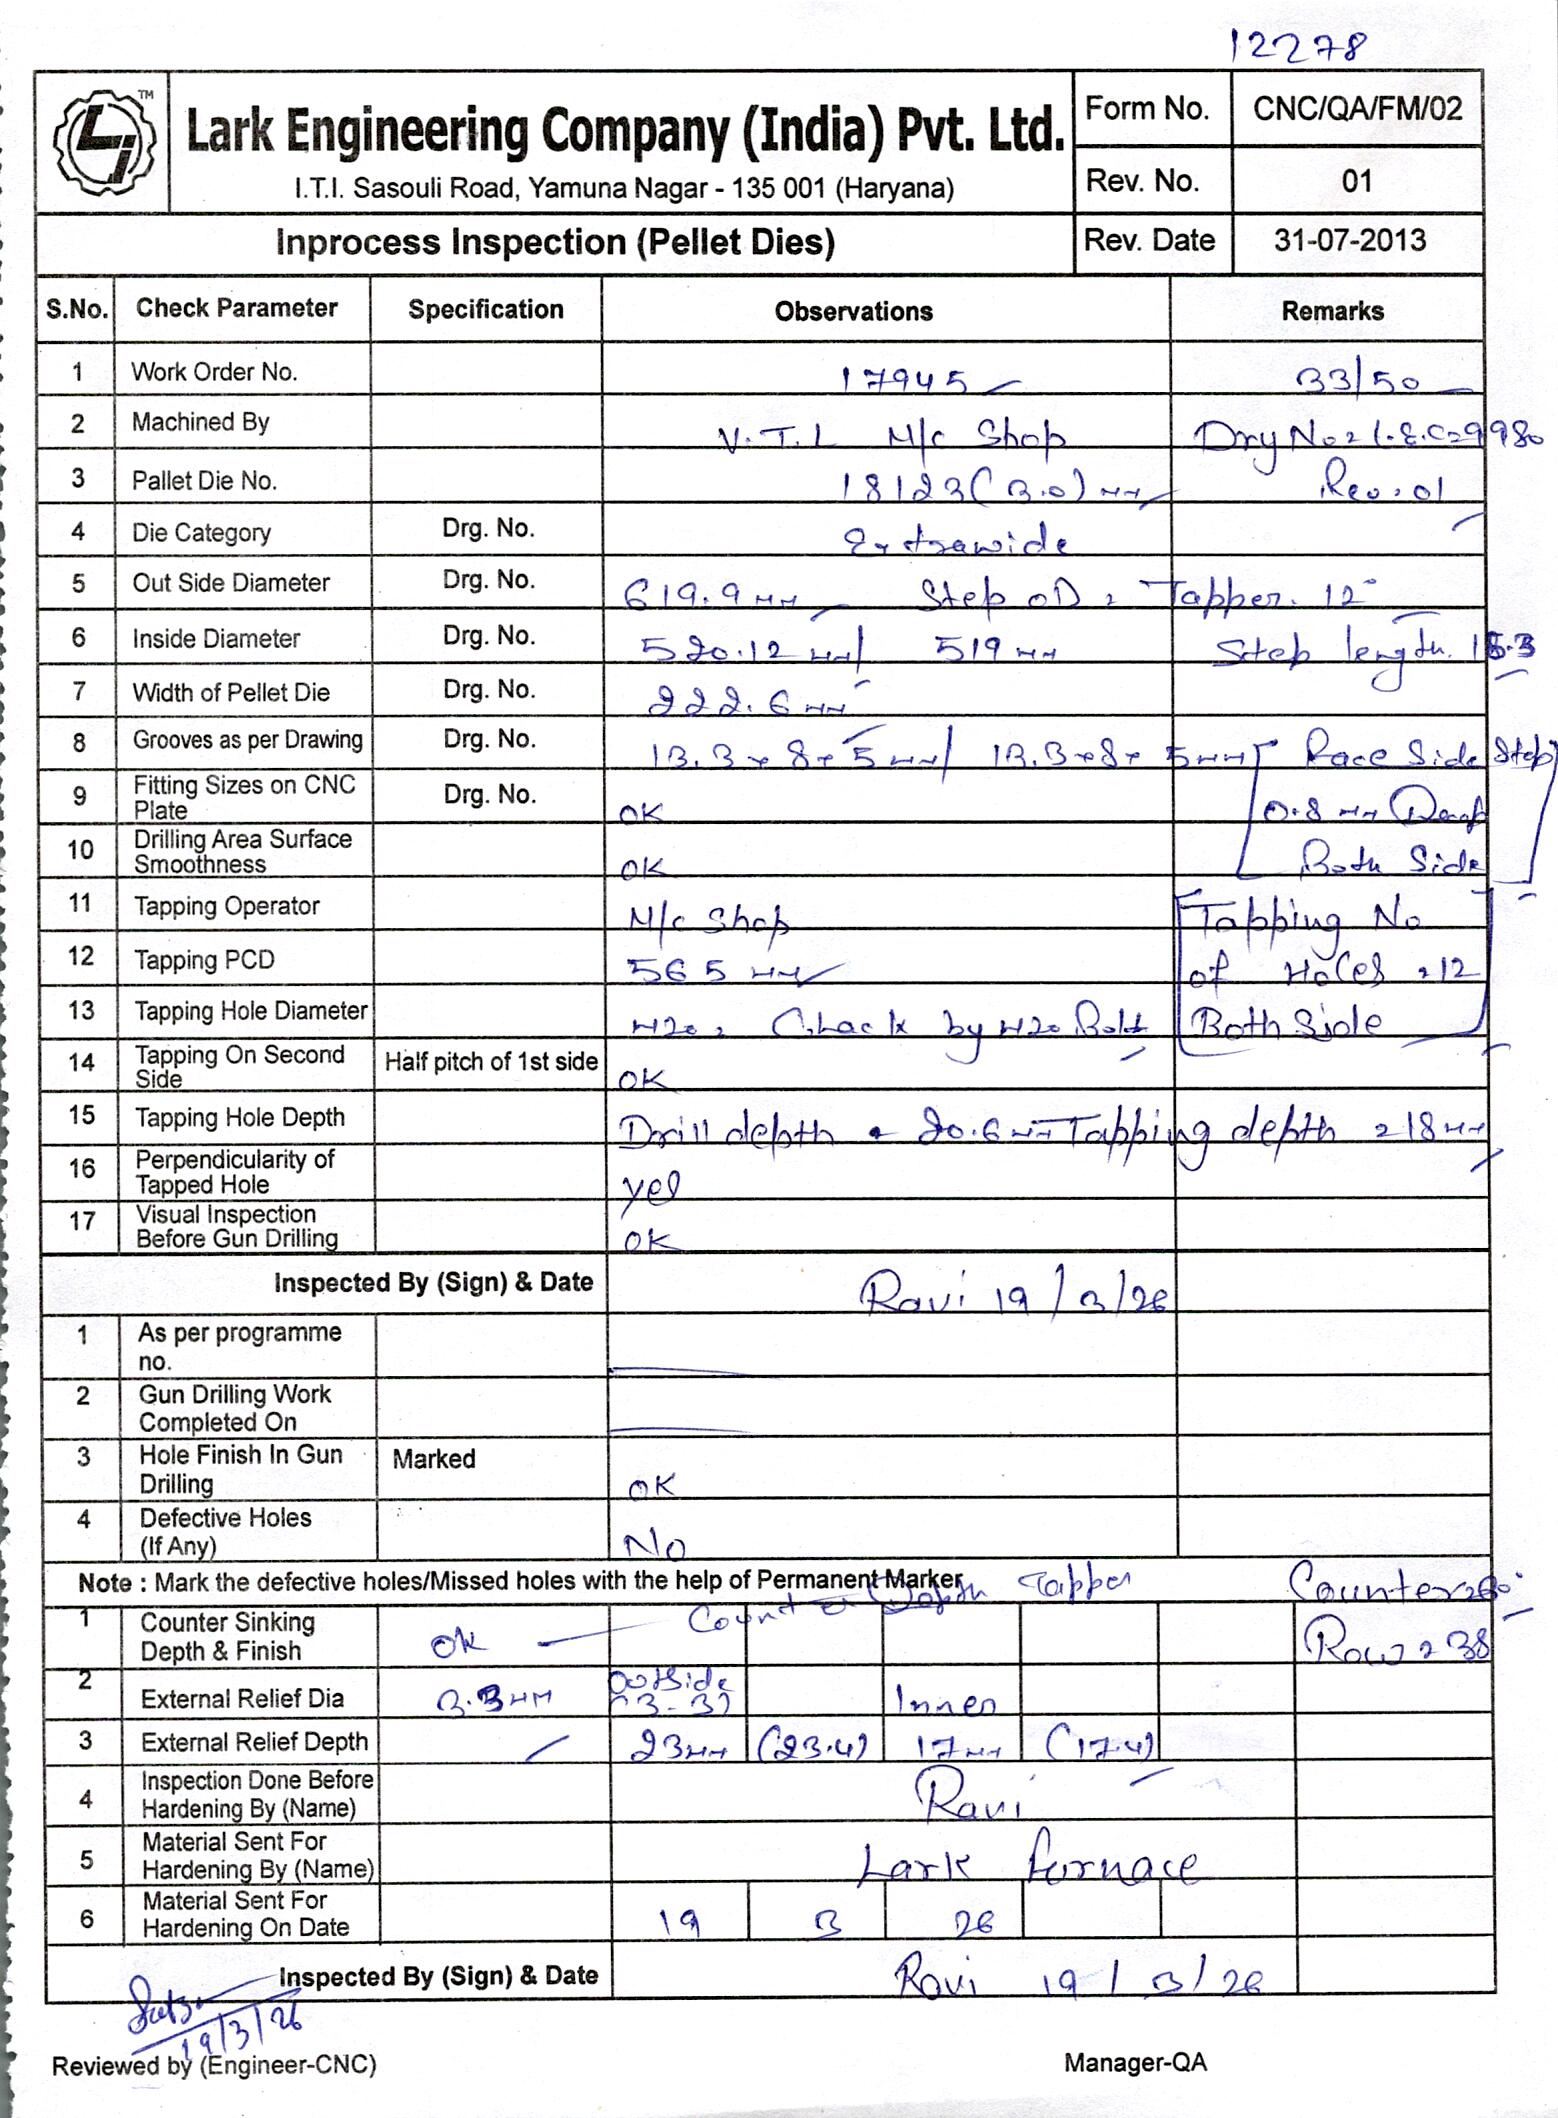 12278
TM
Lark Engineering Company (India) Pvt. Ltd.
I.T.I. Sasouli Road, Yamuna Nagar - 135 001 (Haryana)
Form No. CNC/QA/FM/02
Rev. No. 01
Inprocess Inspection (Pellet Dies) Rev. Date 31-07-2013
S.No. Check Parameter Specification Observations Remarks
1 Work Order No. 17945 33/50
2 Machined By V.T.L M/c Shop Drg No = L.E.C=9980
3 Pallet Die No. 18123 (3.0) mm Rev. 01
4 Die Category Drg. No. Extrawide
5 Out Side Diameter Drg. No. 619.9 mm Step OD = Tapper. 12°
6 Inside Diameter Drg. No. 520.12 mm / 519 mm Step length. 15.3
7 Width of Pellet Die Drg. No. 222.6 mm
8 Grooves as per Drawing Drg. No. 13.3 x 8 x 5 mm / 13.3 x 8 x 5 mm Race Side Step
9 Fitting Sizes on CNC Plate Drg. No. OK 0.8 mm Deep
10 Drilling Area Surface Smoothness OK Both Side
11 Tapping Operator M/c Shop Tapping No
12 Tapping PCD 565 mm of Holes = 12
13 Tapping Hole Diameter M20, Check by M20 Bolt Both Side
14 Tapping On Second Side Half pitch of 1st side OK
15 Tapping Hole Depth Drill depth = 20.6 mm Tapping depth = 18 mm
16 Perpendicularity of Tapped Hole yes
17 Visual Inspection Before Gun Drilling OK
Inspected By (Sign) & Date Ravi 19/3/26
1 As per programme no.
2 Gun Drilling Work Completed On
3 Hole Finish In Gun Drilling Marked OK
4 Defective Holes (If Any) No
Note : Mark the defective holes/Missed holes with the help of Permanent Marker
Counter Depth Tapper Counter = 60°
1 Counter Sinking Depth & Finish OK Row = 38
2 External Relief Dia 3.3 mm Outside (3-3) Inner
3 External Relief Depth 23 mm (23.4) 17 mm (17.4)
4 Inspection Done Before Hardening By (Name) Ravi
5 Material Sent For Hardening By (Name) Lark furnace
6 Material Sent For Hardening On Date 19 3 26
Inspected By (Sign) & Date Ravi 19/3/26
19/3/26
Reviewed by (Engineer-CNC) Manager-QA